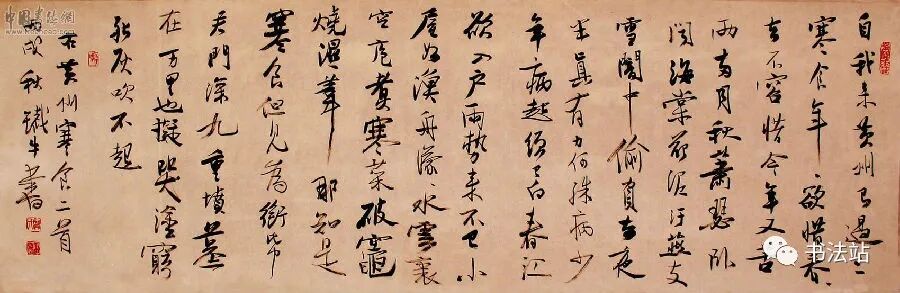 自我来黄州已過三
寒食年〻欲惜春〻
去不容惜今年又苦
雨两月秋蕭瑟卧
闻海棠花泥汙燕支
雪闇中偷負去夜
半真有力何殊病少
年病起须已白春江
欲入户雨势来不已小
屋如漁舟濛〻水雲裏
空庖煮寒菜破竈
燒溫葦那知是
寒食但见烏衔帋
君門深九重墳墓
在万里也擬哭塗窮
死灰吹不起
右黄州寒食二首
丙戌秋鐵牛書
中国书法网
书法站